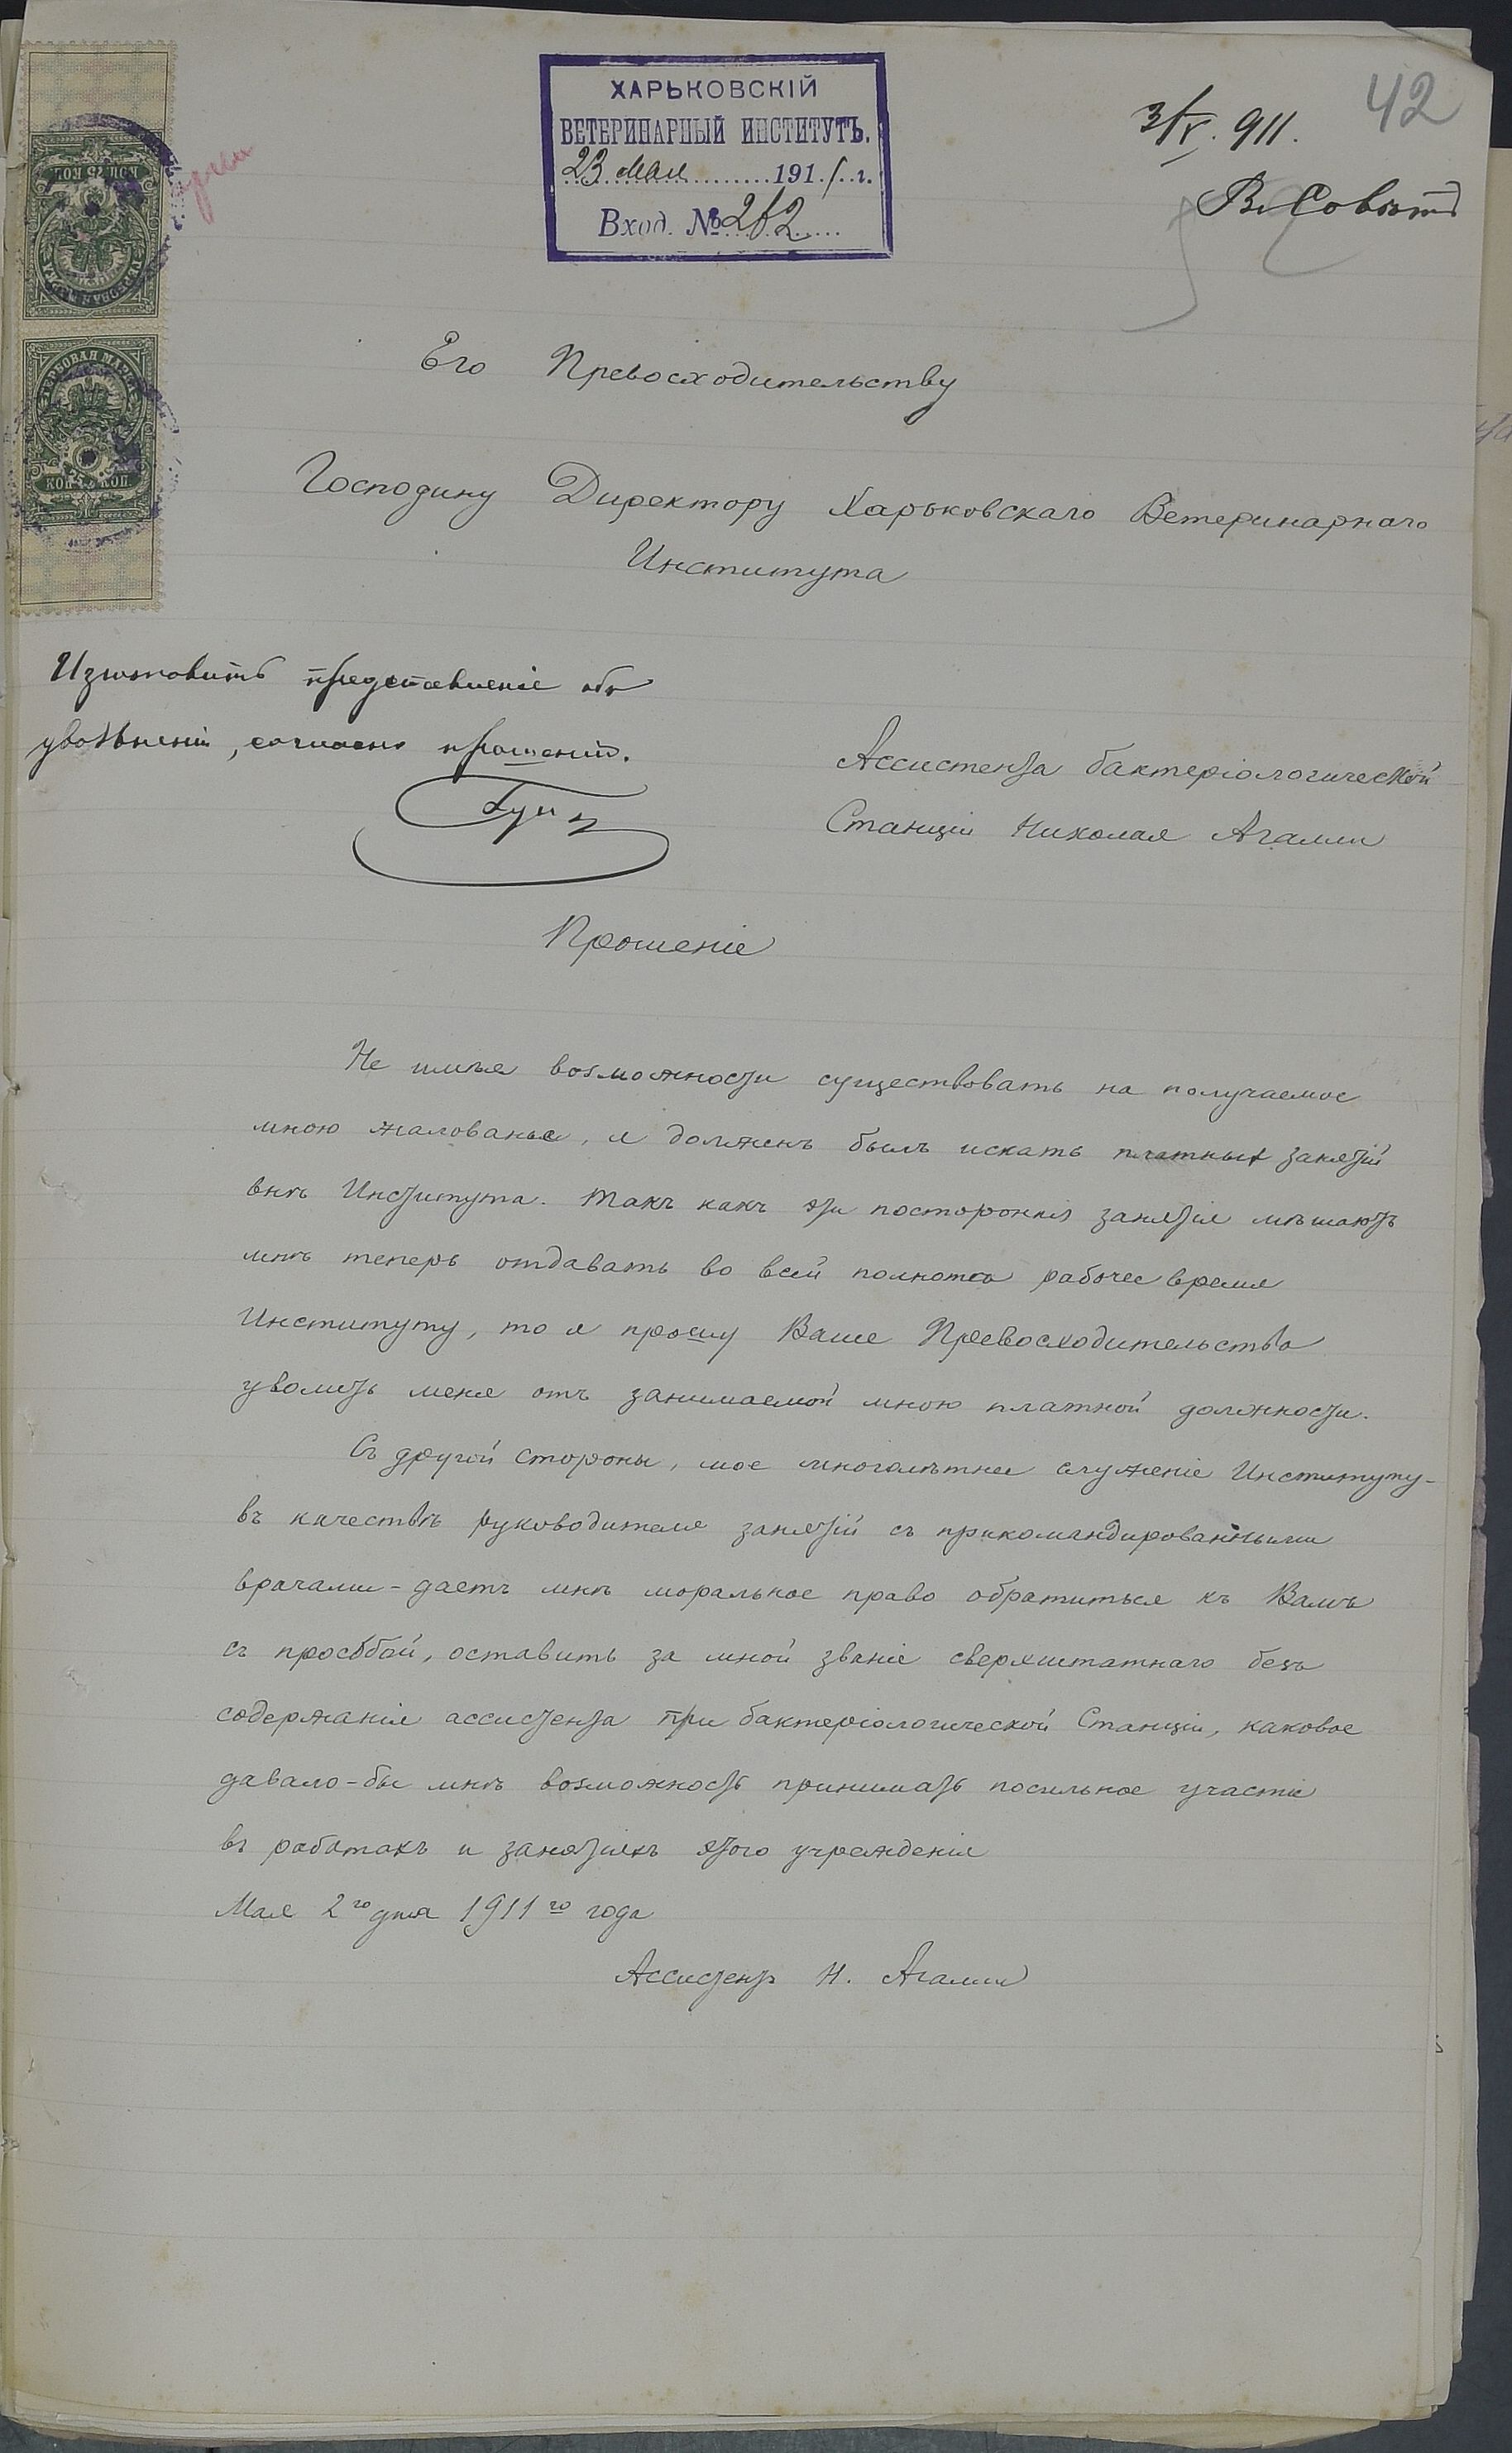 42
ХАРЬКОВСКІЙ
ВЕТЕРИНАРНЫЙ ИНСТИТУТЪ.
23 мая 1911 г.
Вход. №
3/V. 911.
Въ Совѣтъ
ГЕРБОВАЯ МАРКА
75 КОП.
Его Превосходительству
Господину Директору Харьковскаго Ветеринарнаго
Института
Изготовить представленіе объ
увольненіи, согласно прошенію.
Ассистента бактеріологической
Станціи Николая Агалли
Прошеніе
Не имѣя возможности существовать на получаемое
мною жалованье, я долженъ былъ искать платныхъ занятій
внѣ Института. Такъ какъ эти постороннія занятія мѣшаютъ
мнѣ теперь отдавать во всей полнотѣ рабочее время
Институту, то я прошу Ваше Превосходительство
уволить меня отъ занимаемой мною платной должности.
Съ другой стороны, мое многолѣтнее служеніе Институту-
въ качествѣ руководителя занятій съ прикомандированными
врачами - даетъ мнѣ моральное право обратиться къ Вамъ
съ просьбой, оставить за мной званіе сверхштатнаго безъ
содержанія ассистента при бактеріологической Станціи, каковое
давало-бы мнѣ возможность принимать посильное участіе
въ работахъ и занятіяхъ этого учрежденія
Мая 2го дня 1911го года
Ассистентъ Н. Агалли